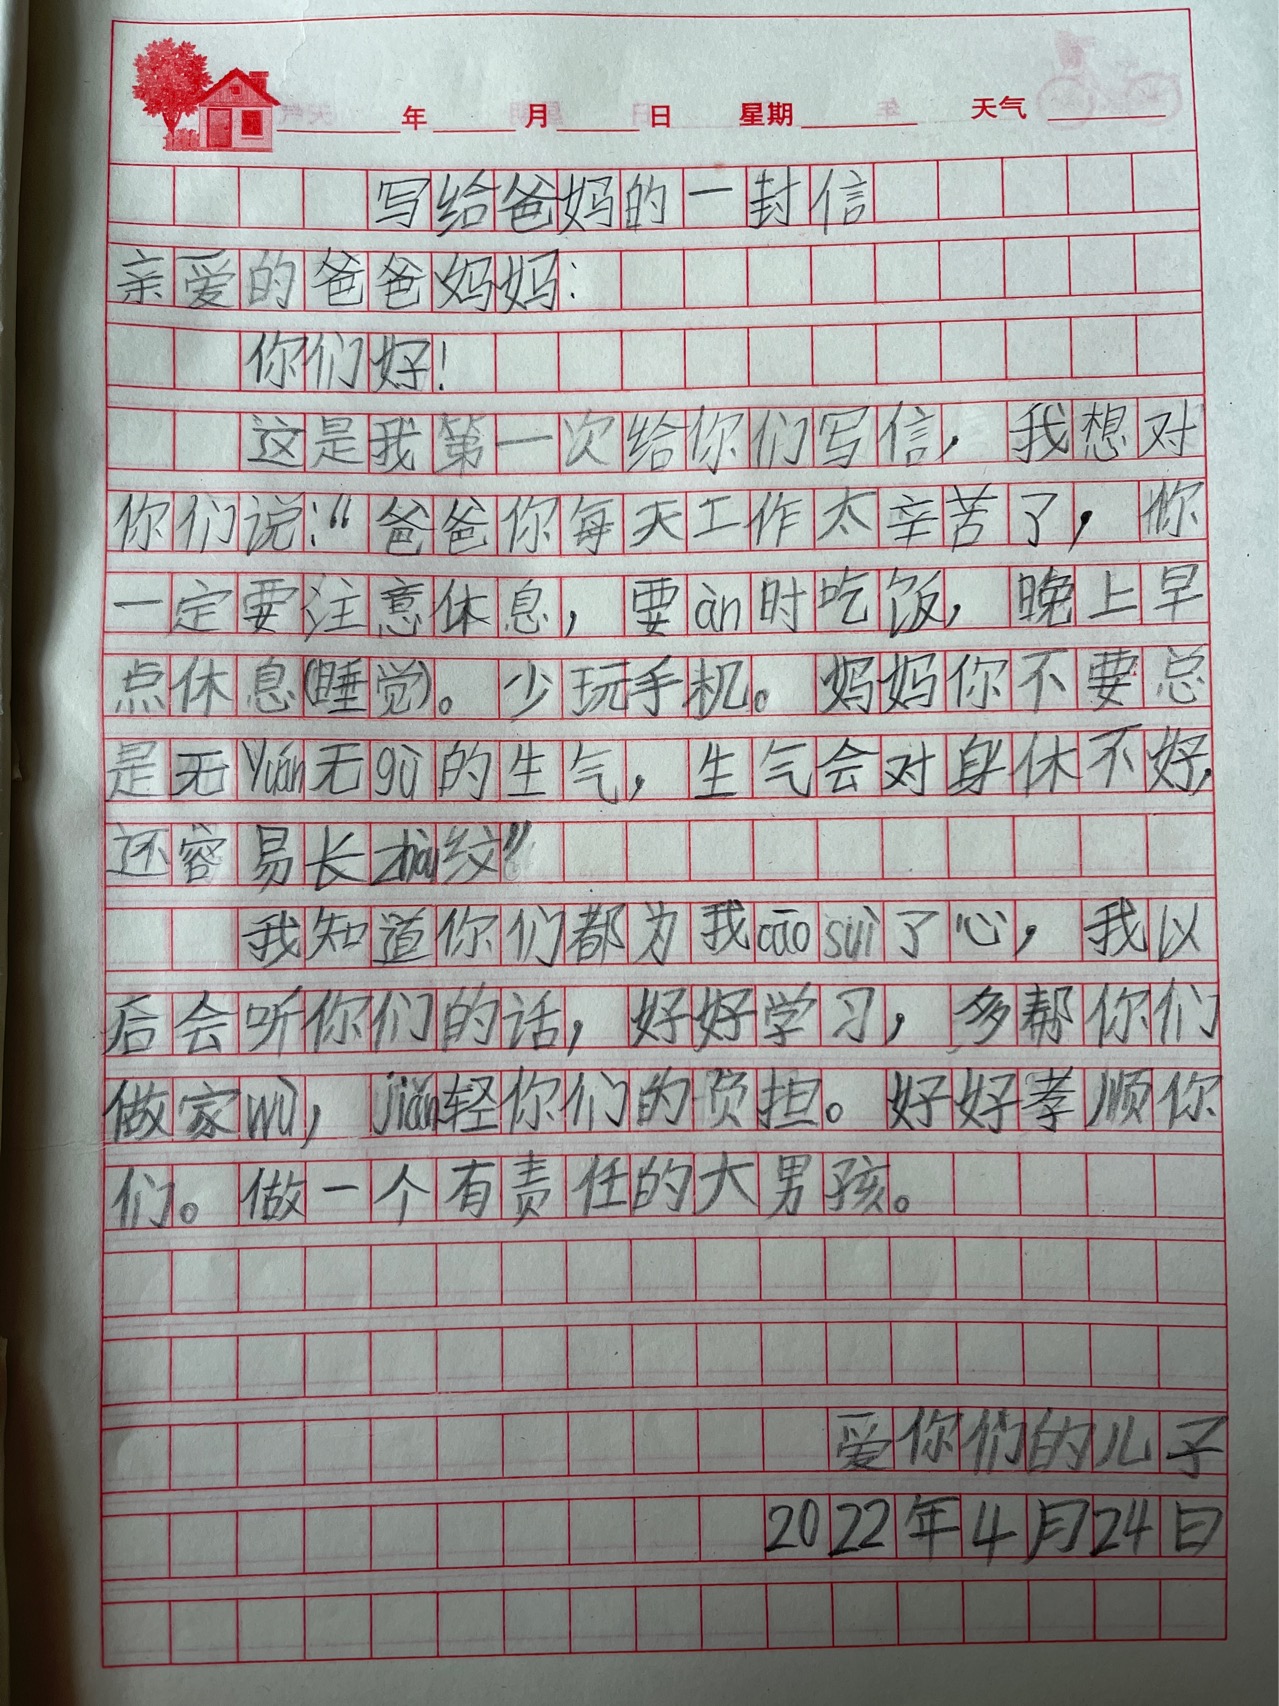 年 月 日 星期 天气
写给爸妈的一封信
亲爱的爸爸妈妈：
你们好！
这是我第一次给你们写信，我想对
你们说：“爸爸你每天工作太辛苦了，你
一定要注意休息，要àn时吃饭，晚上早
点休息(睡觉)。少玩手机。妈妈你不要总
是无yuán无gù的生气，生气会对身休不好，
还容易长zhòu纹”
我知道你们都为我cāo suì了心，我以
后会听你们的话，好好学习，多帮你们
做家wù，jiǎn轻你们的负担。好好孝顺你
们。做一个有责任的大男孩。
爱你们的儿子
2022年4月24日